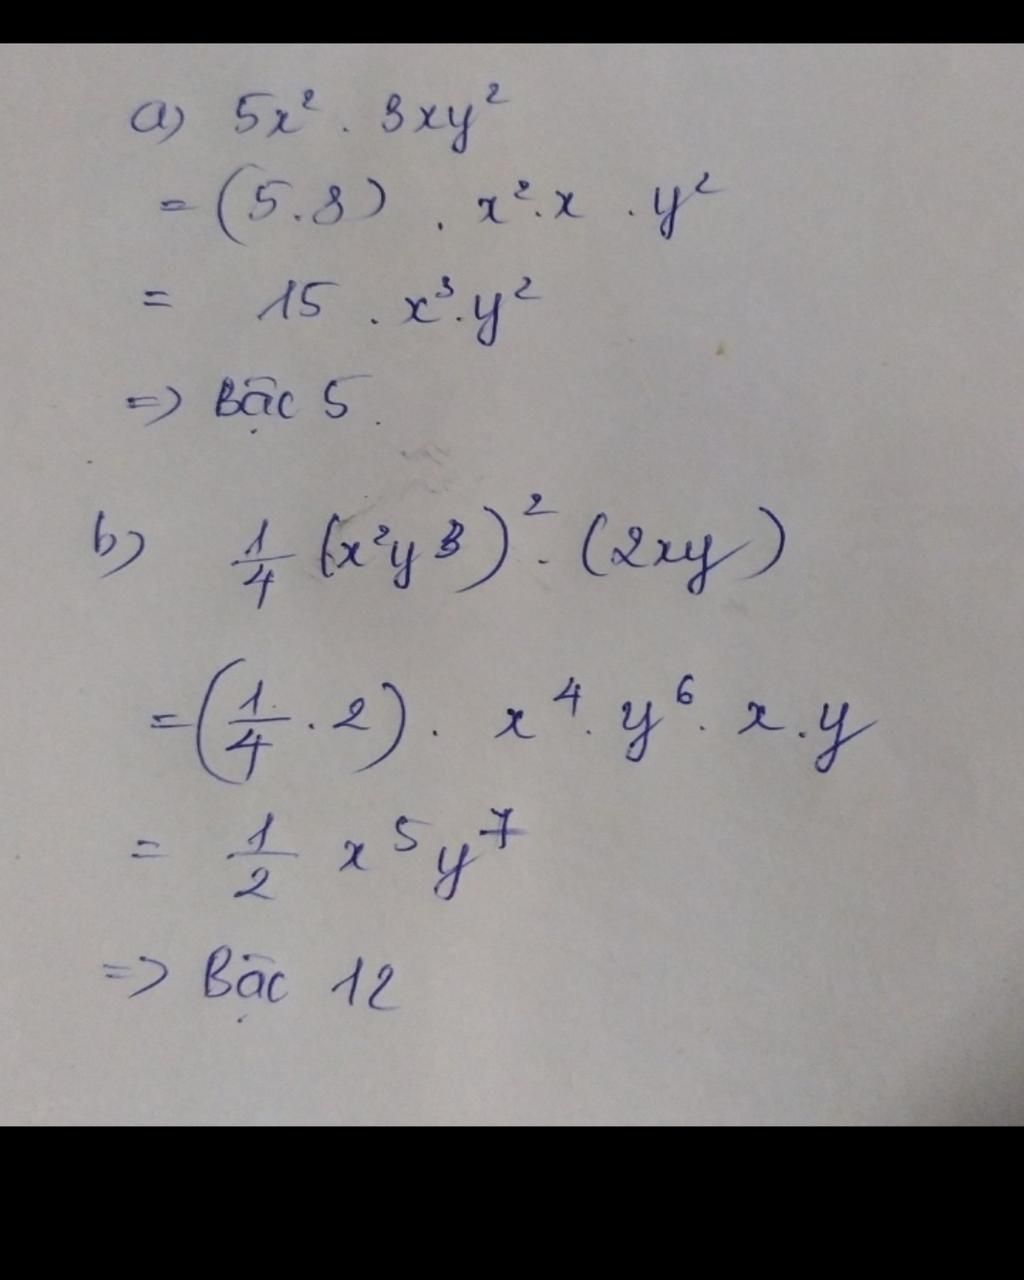 a) 5x² . 3xy²
= (5.3) . x².x . y²
= 15 . x³.y²
=> Bậc 5.
b) 1/4 (x²y³)² . (2xy)
= (1/4 . 2) . x⁴ . y⁶ . x . y
= 1/2 x⁵y⁷
=> Bậc 12